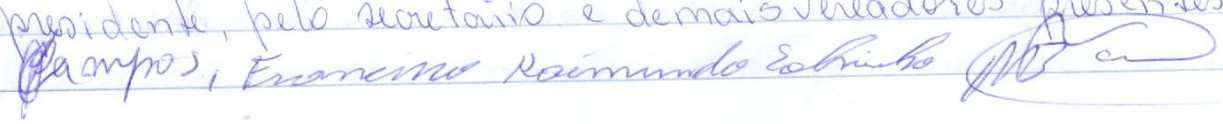 presidente, pelo secretário e demais vereadores presentes
Campos, Francisco Raimundo Sobrinho